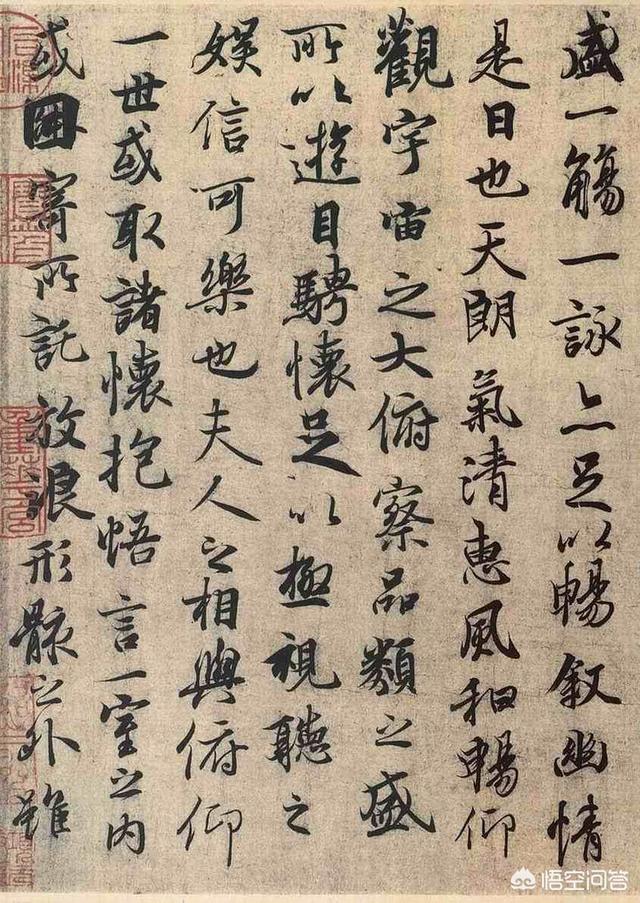 盛一觴一詠亦足以暢叙幽情
是日也天朗氣清惠風和暢仰
觀宇宙之大俯察品類之盛
所以遊目騁懷足以極視聽之
娱信可樂也夫人之相與俯仰
一世或取諸懷抱悟言一室之内
或因寄所託放浪形骸之外雖
悟空问答